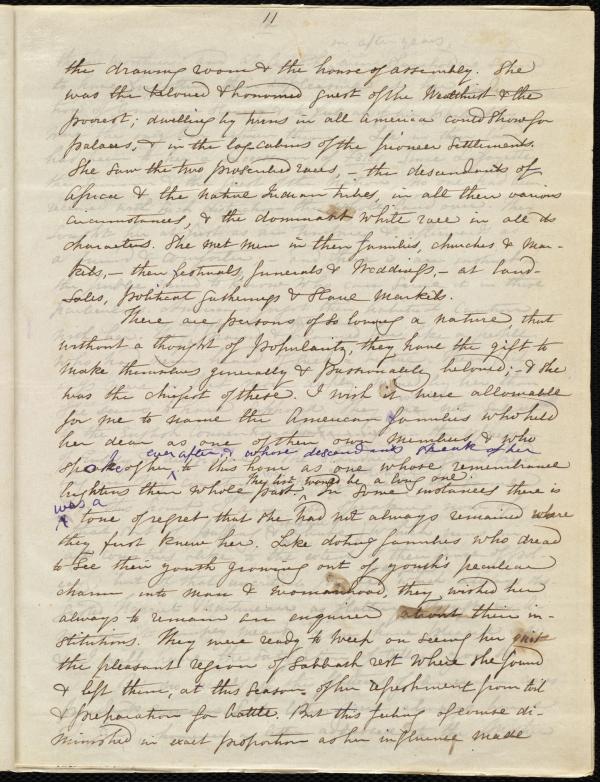 11
the drawing room & the house of assembly. She
was the beloved & honored guest of the Wealthiest & the
poorest; dwelling by turns in all America could show for
palaces, & in the log cabins of the pioneer settlements.
She saw the two proscribed races, – the descendants of
Africa & the native Indian tribes, in all their various
circumstances, & the dominant white race in all its
characters. She met men in their families, churches & Mar-
kets, – their festivals, funerals & Weddings, – at land-
sales, political gatherings & Slave Markets.
There are persons of so loving a nature that
without a thought of popularity, they have the gift to
make themselves generally & passionately beloved; – & she
was the chiefest of these. I wish it were allowable
for me to name the American families who held
her dear as one of their own members, & who
ever after; & whose descendants speak of her
spoke of her to this hour as one whose remembrance
brightens their whole past. In some instances there is
was a
tone of regret that she had not always remained where
they first knew her. Like doting families who dread
to see their youth growing out of youth's peculiar
charm into man & womanhood, they wished her
always to remain an enquirer about their in-
stitutions. They were ready to weep on seeing her quit
the pleasant region of Sabbath rest where she found
& left them, at this season of her refreshment from toil
& preparation for battle. But this feeling of course di-
minished in exact proportion as her influence made